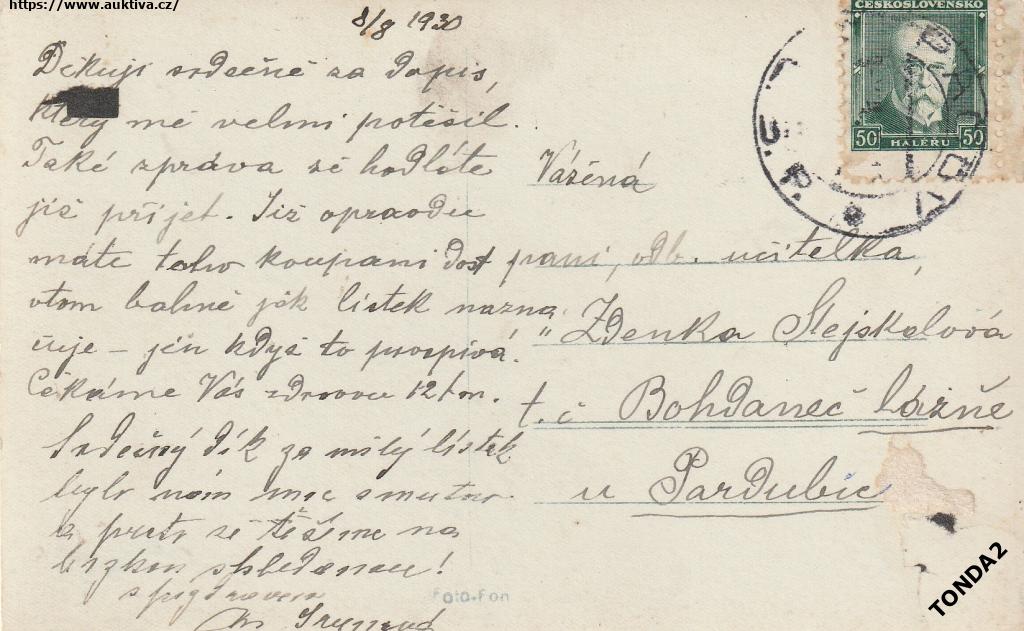 https://www.auktiva.cz/
8/8 1930
Děkuji srdečně za dopis,
který mě velmi potěšil.
Také zpráva že hodláte
již přijet. Již opravdu
máte toho koupaní dost
v tom bahně jak lístek nazna
čuje – jen když to prospívá.
Čekáme Vás zdravou 12 tm.
Srdečný dík za milý lístek
bylo nám moc smutno
a proto se těšíme na
brzkou shledanou!
ČESKOSLOVENSKO
50 50
HALÉŘU
Vážená
paní, odb. učitelka,
Zdenka Stejskalová
t. č. Bohdaneč lázně
u Pardubic
Foto-Fon
TONDA2